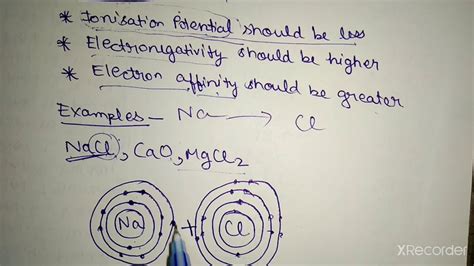 * Ionisation Potential should be less
* Electronegativity should be higher
* Electron affinity should be greater
Examples - Na → Cl
NaCl, CaO, MgCl2
Na + Cl
XRecorder